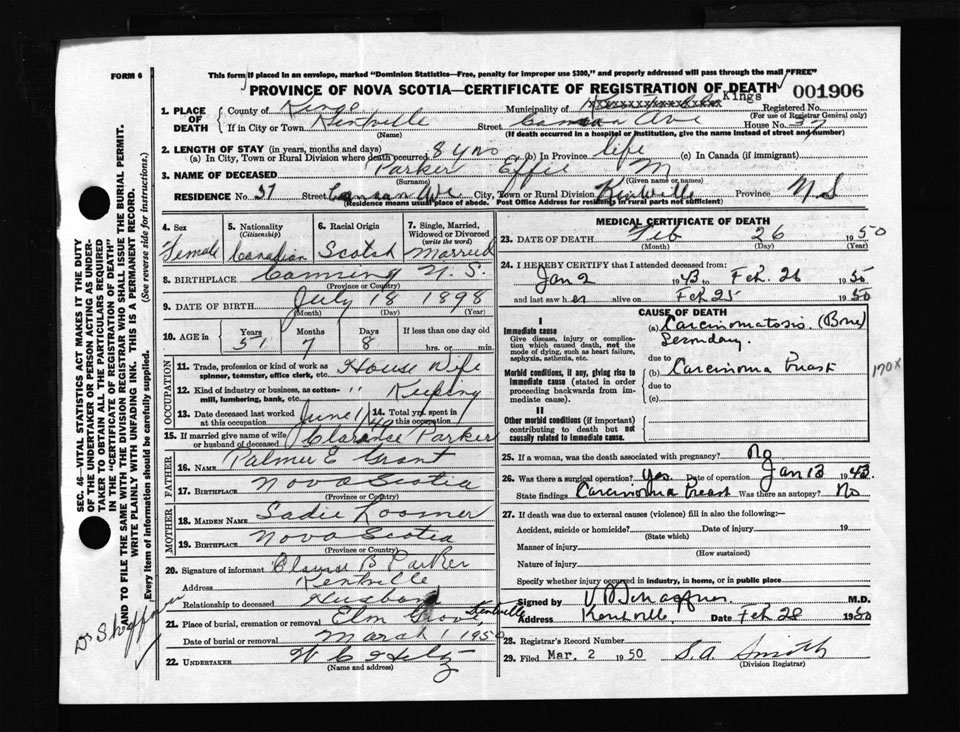 FORM 6
This form if placed in an envelope, marked "Dominion Statistics—Free, penalty for improper use $300," and properly addressed will pass through the mail "FREE"
PROVINCE OF NOVA SCOTIA—CERTIFICATE OF REGISTRATION OF DEATH 001906
1. PLACE OF DEATH County of Kings Municipality of Kings Registered No.
(For use of Registrar General only)
If in City or Town Kentville Street Canaan Ave House No. 37
(Name) (If death occurred in a hospital or institution, give the name instead of street and number)
2. LENGTH OF STAY (in years, months and days)
(a) In City, Town or Rural Division where death occurred 8 yrs (b) In Province life (c) In Canada (if immigrant)
3. NAME OF DECEASED Parker Effie M
(Surname) (Given name or names)
RESIDENCE No. 37 Street Canaan Ave City, Town or Rural Division Kentville Province N S
(Residence means usual place of abode. Post Office Address for residing in rural parts not sufficient)
4. Sex 5. Nationality (Citizenship) 6. Racial Origin 7. Single, Married, Widowed or Divorced (write the word)
Female Canadian Scotch Married
8. BIRTHPLACE Canning N. S.
(Province or Country)
9. DATE OF BIRTH July 18 1898
(Month) (Day) (Year)
10. AGE in Years Months Days If less than one day old
51 7 8 hrs. or min.
OCCUPATION
11. Trade, profession or kind of work as spinner, teamster, office clerk, etc. House Wife
12. Kind of industry or business, as cotton-mill, lumbering, bank, etc. " Keeping
13. Date deceased last worked at this occupation June 1/49 14. Total yrs. spent in this occupation
15. If married give name of wife or husband of deceased Claranse Parker
FATHER
16. NAME Palmer E Grant
17. BIRTHPLACE Nova Scotia
(Province or Country)
MOTHER
18. MAIDEN NAME Sadie Loomer
19. BIRTHPLACE Nova Scotia
(Province or Country)
20. Signature of informant B Parker
Address Kentville
Relationship to deceased Husband
21. Place of burial, cremation or removal Elm Grove, Kentville
Date of burial or removal March 1, 1950
22. UNDERTAKER W C Hiltz
(Name and address)
MEDICAL CERTIFICATE OF DEATH
23. DATE OF DEATH Feb 26 1950
(Month) (Day) (Year)
24. I HEREBY CERTIFY that I attended deceased from:
Jan 2 1943 to Feb. 26 1950
and last saw her alive on Feb 25 1950
CAUSE OF DEATH
I
Immediate cause
Give disease, injury or complication which caused death, not the mode of dying, such as heart failure, asphyxia, asthenia, etc.
(a) Carcinomatosis (Bone)
Secondary.
due to
Morbid conditions, if any, giving rise to immediate cause (stated in order proceeding backwards from immediate cause).
(b) Carcinoma Breast
170X
due to
(c)
II
Other morbid conditions (if important) contributing to death but not causally related to immediate cause.
25. If a woman, was the death associated with pregnancy? No
26. Was there a surgical operation? Yes. Date of operation Jan 13 1943.
State findings Carcinoma Breast Was there an autopsy? No
27. If death was due to external causes (violence) fill in also the following:—
Accident, suicide or homicide? Date of injury 19
(State which)
Manner of injury
(How sustained)
Nature of injury
Specify whether injury occurred in industry, in home, or in public place
Signed by M.D.
Address Kentville. Date Feb 28 1950
28. Registrar's Record Number
29. Filed Mar. 2 1950 S.A. Smith
(Division Registrar)
SEC. 46—VITAL STATISTICS ACT MAKES IT THE DUTY
OF THE UNDERTAKER OR PERSON ACTING AS UNDER-
TAKER TO OBTAIN ALL THE PARTICULARS REQUIRED
IN THE "CERTIFICATE OF REGISTRATION OF DEATH"
AND TO FILE THE SAME WITH THE DIVISION REGISTRAR WHO SHALL ISSUE THE BURIAL PERMIT.
WRITE PLAINLY WITH UNFADING INK. THIS IS A PERMANENT RECORD.
Every item of information should be carefully supplied. (See reverse side for instructions.)